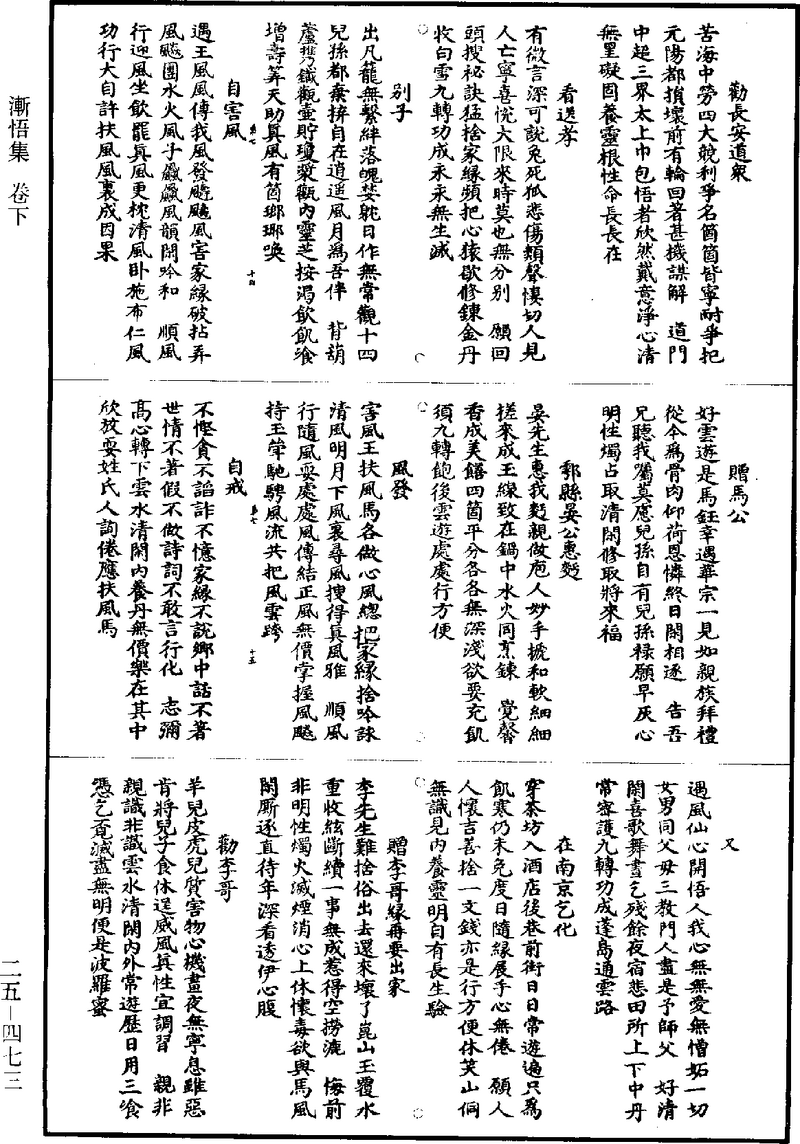 漸悟集　卷下
二五—四七三
勸長安道衆
苦海中勞四大競利爭名箇箇皆寧耐爭把
元陽都損壞前有輪回著甚機謀解　道門
中超三界太上巾包悟者欣然戴意淨心清
無罣礙固養靈根性命長長在
看送孝
有微言深可說兔死狐悲傷類聲悽切人見
人亡寧喜悅大限來時莫也無分別　願回
頭搜祕訣猛捨家緣頻把心猿歇修鍊金丹
收白雪九轉功成永永無生滅
別子
出凡籠無繫絆落魄婪耽日作無常觀十四
兒孫都棄拚自在逍遥風月爲吾伴　背葫
蘆携鐵觀壷貯瓊漿觀内靈芝按渴飲飢飡
增壽筭天助真風有箇瑯瑘喚
自害風
遇王風風傳我風發颼颼風害家緣破拈弄
風飈團水火風子飝飝風韻閑吟和　順風
行迎風坐飲罷真風更枕清風卧施布仁風
功行大自許扶風風裏成因果
十四
贈馬公
好雲遊是馬鈺幸遇華宗一見如親族拜禮
從今爲骨肉仰荷恩憐終日閑相逐　告吾
兄聽我囑莫慮兒孫自有兒孫祿願早灰心
明性燭占取清閑修取將來福
鄠縣晏公惠麪
晏先生惠我麪親做庖人妙手搋和軟細細
搓來成玉線致在鍋中水火同烹鍊　覺馨
香成美饍四箇平分各各無深淺欲要充飢
須九轉飽後雲遊處處行方便
風發
害風王扶風馬各做心風總把家緣捨吟詠
清風明月下風裏尋風搜得真風雅　順風
行隨風耍處處風傳結正風無價掌握風飈
持玉斚馳騁風流共把風雲跨
自戒
不慳貪不諂詐不憶家緣不說鄉中話不著
世情不著假不做詩詞不敢言行化　志彌
高心轉下雲水清閑内養丹無價樂在其中
欣放耍姓氏人詢倦應扶風馬
十五
又
遇風仙心開悟人我心無無愛無憎妬一切
女男同父母三教門人盡是予師父　好清
閑喜歌舞晝乞殘餘夜宿悲田所上下中丹
常密護九轉功成蓬島通雲路
在南京乞化
穿茶坊入酒店後巷前街日日常遊遍只爲
飢寒仍未免度日隨緣展手心無倦　願人
人懷吉善捨一文錢亦是行方便休笑山侗
無識見内養靈明自有長生驗
贈李哥緣再要出家
李先生難捨俗出去還來壞了崑山玉覆水
重收絃斷續一事無成惹得空撈漉　悔前
非明性燭火滅煙消心上休懷毒欲與馬風
閑厮逐直待年深看透伊心腹
勸李哥
羊兒皮虎兒質害物心機晝夜無寧息雖惡
肯將兒子食休逞威風真性宜調習　親非
親識非識雲水清閑内外常遊歷日用三飡
憑乞覓滅盡無明便是波羅蜜